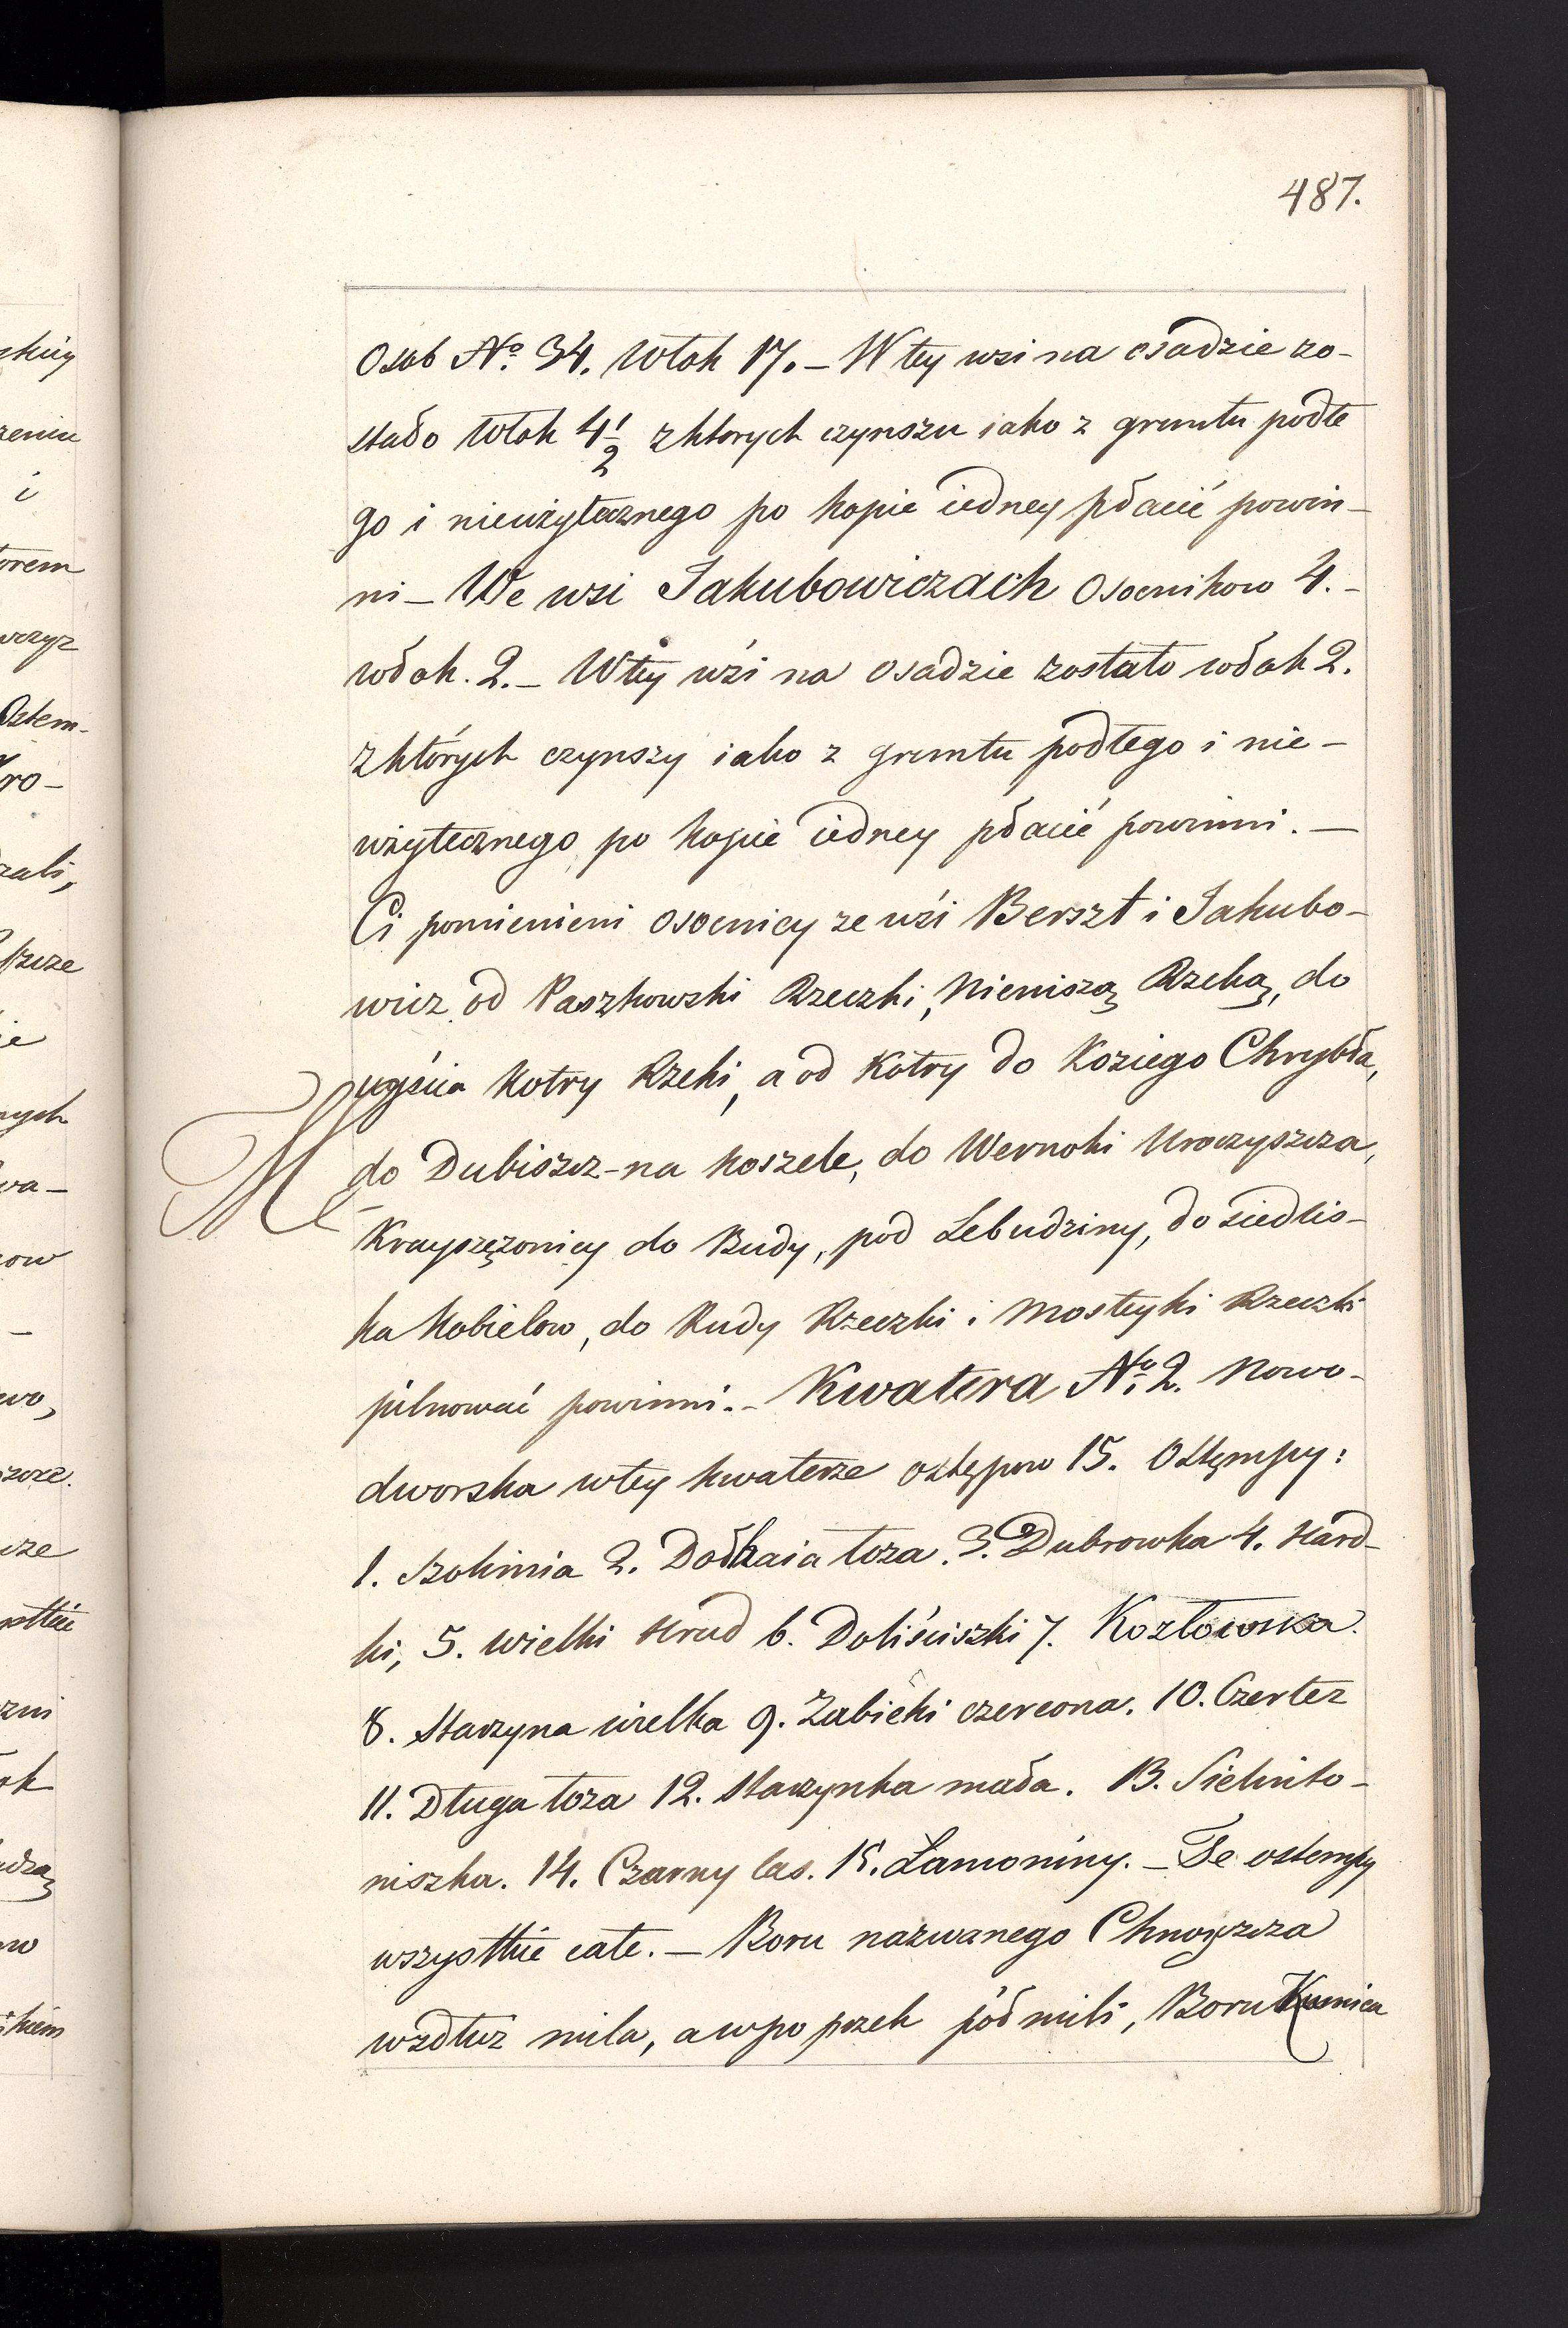 487.
Osob No. 34. Włok 17. – W tey wsi na osadzie zo-
stało Włok 4 1/2 z ktorych czynszu iako z gruntu podłe
go i nieużytecznego po kopie iedney płacić powin-
ni – We wsi Jakubowiczach Osocnikow 4. –
włok. 2. – W tey wśi na osadzie zostało włok 2.
z których czynszy iako z gruntu podłego i nie-
użytecznego po kopie iedney płacić powinni. –
Ci pomienieni osocnicy ze wśi Berszt i Jakubo-
wicz od Paszkowski Rzeczki, Nieniszą Rzeką, do
uyścia Kotry Rzeki, a od Kotry do Koziego Chrybta,
do Dubiszcz-na Koszele, do Wernoki Uroczyszcza,
do Budy, pod Lebudziny, do siedlis-
ka Kobielow, do Rudy Rzeczki i Mosteyki Rzeczki
pilnować powinni. – Kwatera No. 2. Nowo-
dworska w tey kwaterze ostępow 15. Ostęmpy:
1. Szolinia 2. Dołhaia łoza. 3. Dubrowka 4. Hard-
ki, 5. wielki Hrud 6. Doliściszki 7. Kozłowska.
8. Staczyna wielka 9. Zabicki czereona. 10. Czertez
11. Długa łoza 12. Staczynka mała. 13. Sielwito-
niszka. 14. Czarny las. 15. Łamoniny. – Te ostempy
wszystkie całe. – Boru nazwanego Chnoyszcza
wzdłuz mila, a w po przek pół mili, Boru Kuenica